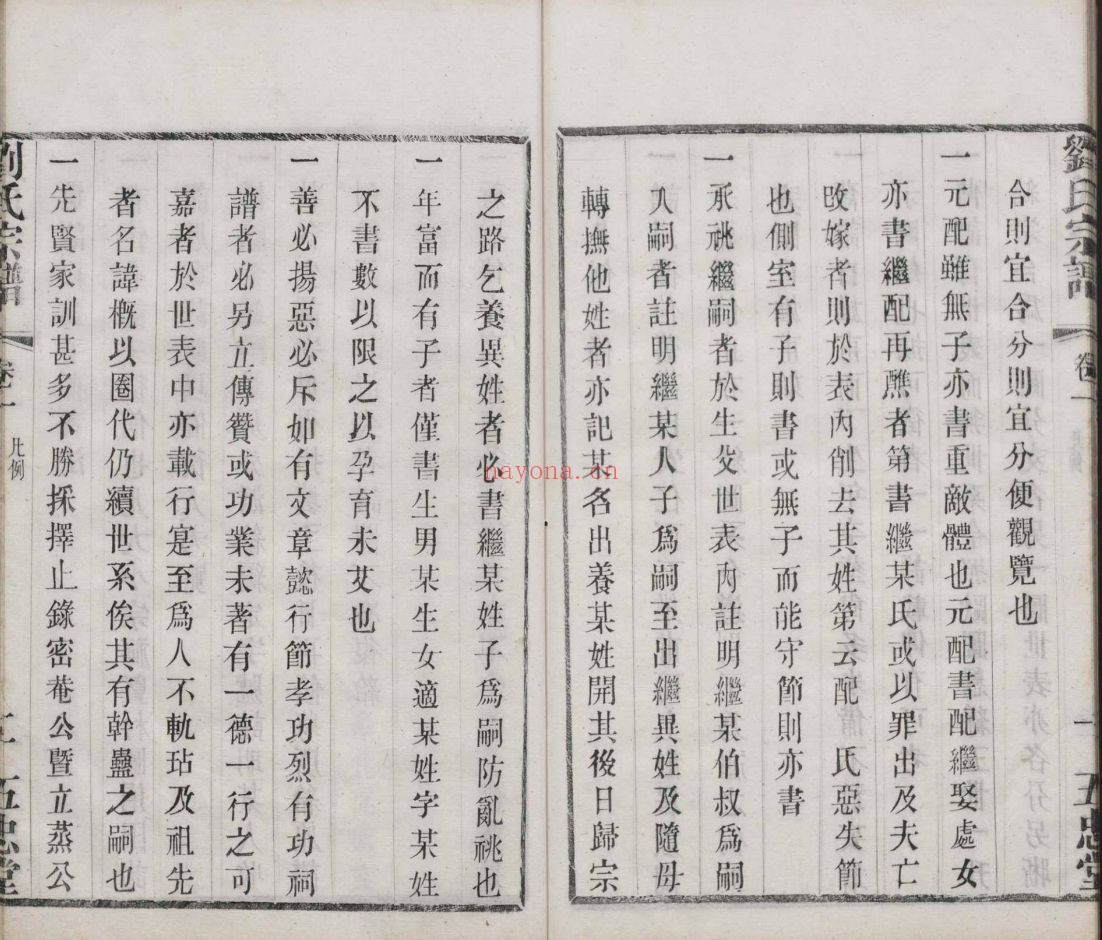 劉氏宗譜
卷一
一
五忠堂
合則宜合分則宜分便觀覽也
一元配雖無子亦書重敵體也元配書配繼娶處女
亦書繼配再醮者第書繼某氏或以罪出及夫亡
改嫁者則於表內削去其姓第云配 氏惡失節
也側室有子則書或無子而能守節則亦書
一承祧繼嗣者於生父世表內註明繼某伯叔爲嗣
入嗣者註明繼某人子爲嗣至出繼異姓及隨母
轉撫他姓者亦記某名出養某姓開其後日歸宗
之路乞養異姓者必書繼某姓子爲嗣防亂祧也
一年富而有子者僅書生男某生女適某姓字某姓
不書數以限之以孕育未艾也
一善必揚惡必斥如有文章懿行節孝功烈有功祠
譜者必另立傳贊或功業未著有一德一行之可
嘉者於世表中亦載行寔至爲人不軌玷及祖先
者名諱概以圈代仍續世系俟其有幹蠱之嗣也
一先賢家訓甚多不勝採擇止錄密菴公暨立蒸公
劉氏宗譜
卷一
凡例
五忠堂
nayona.cn